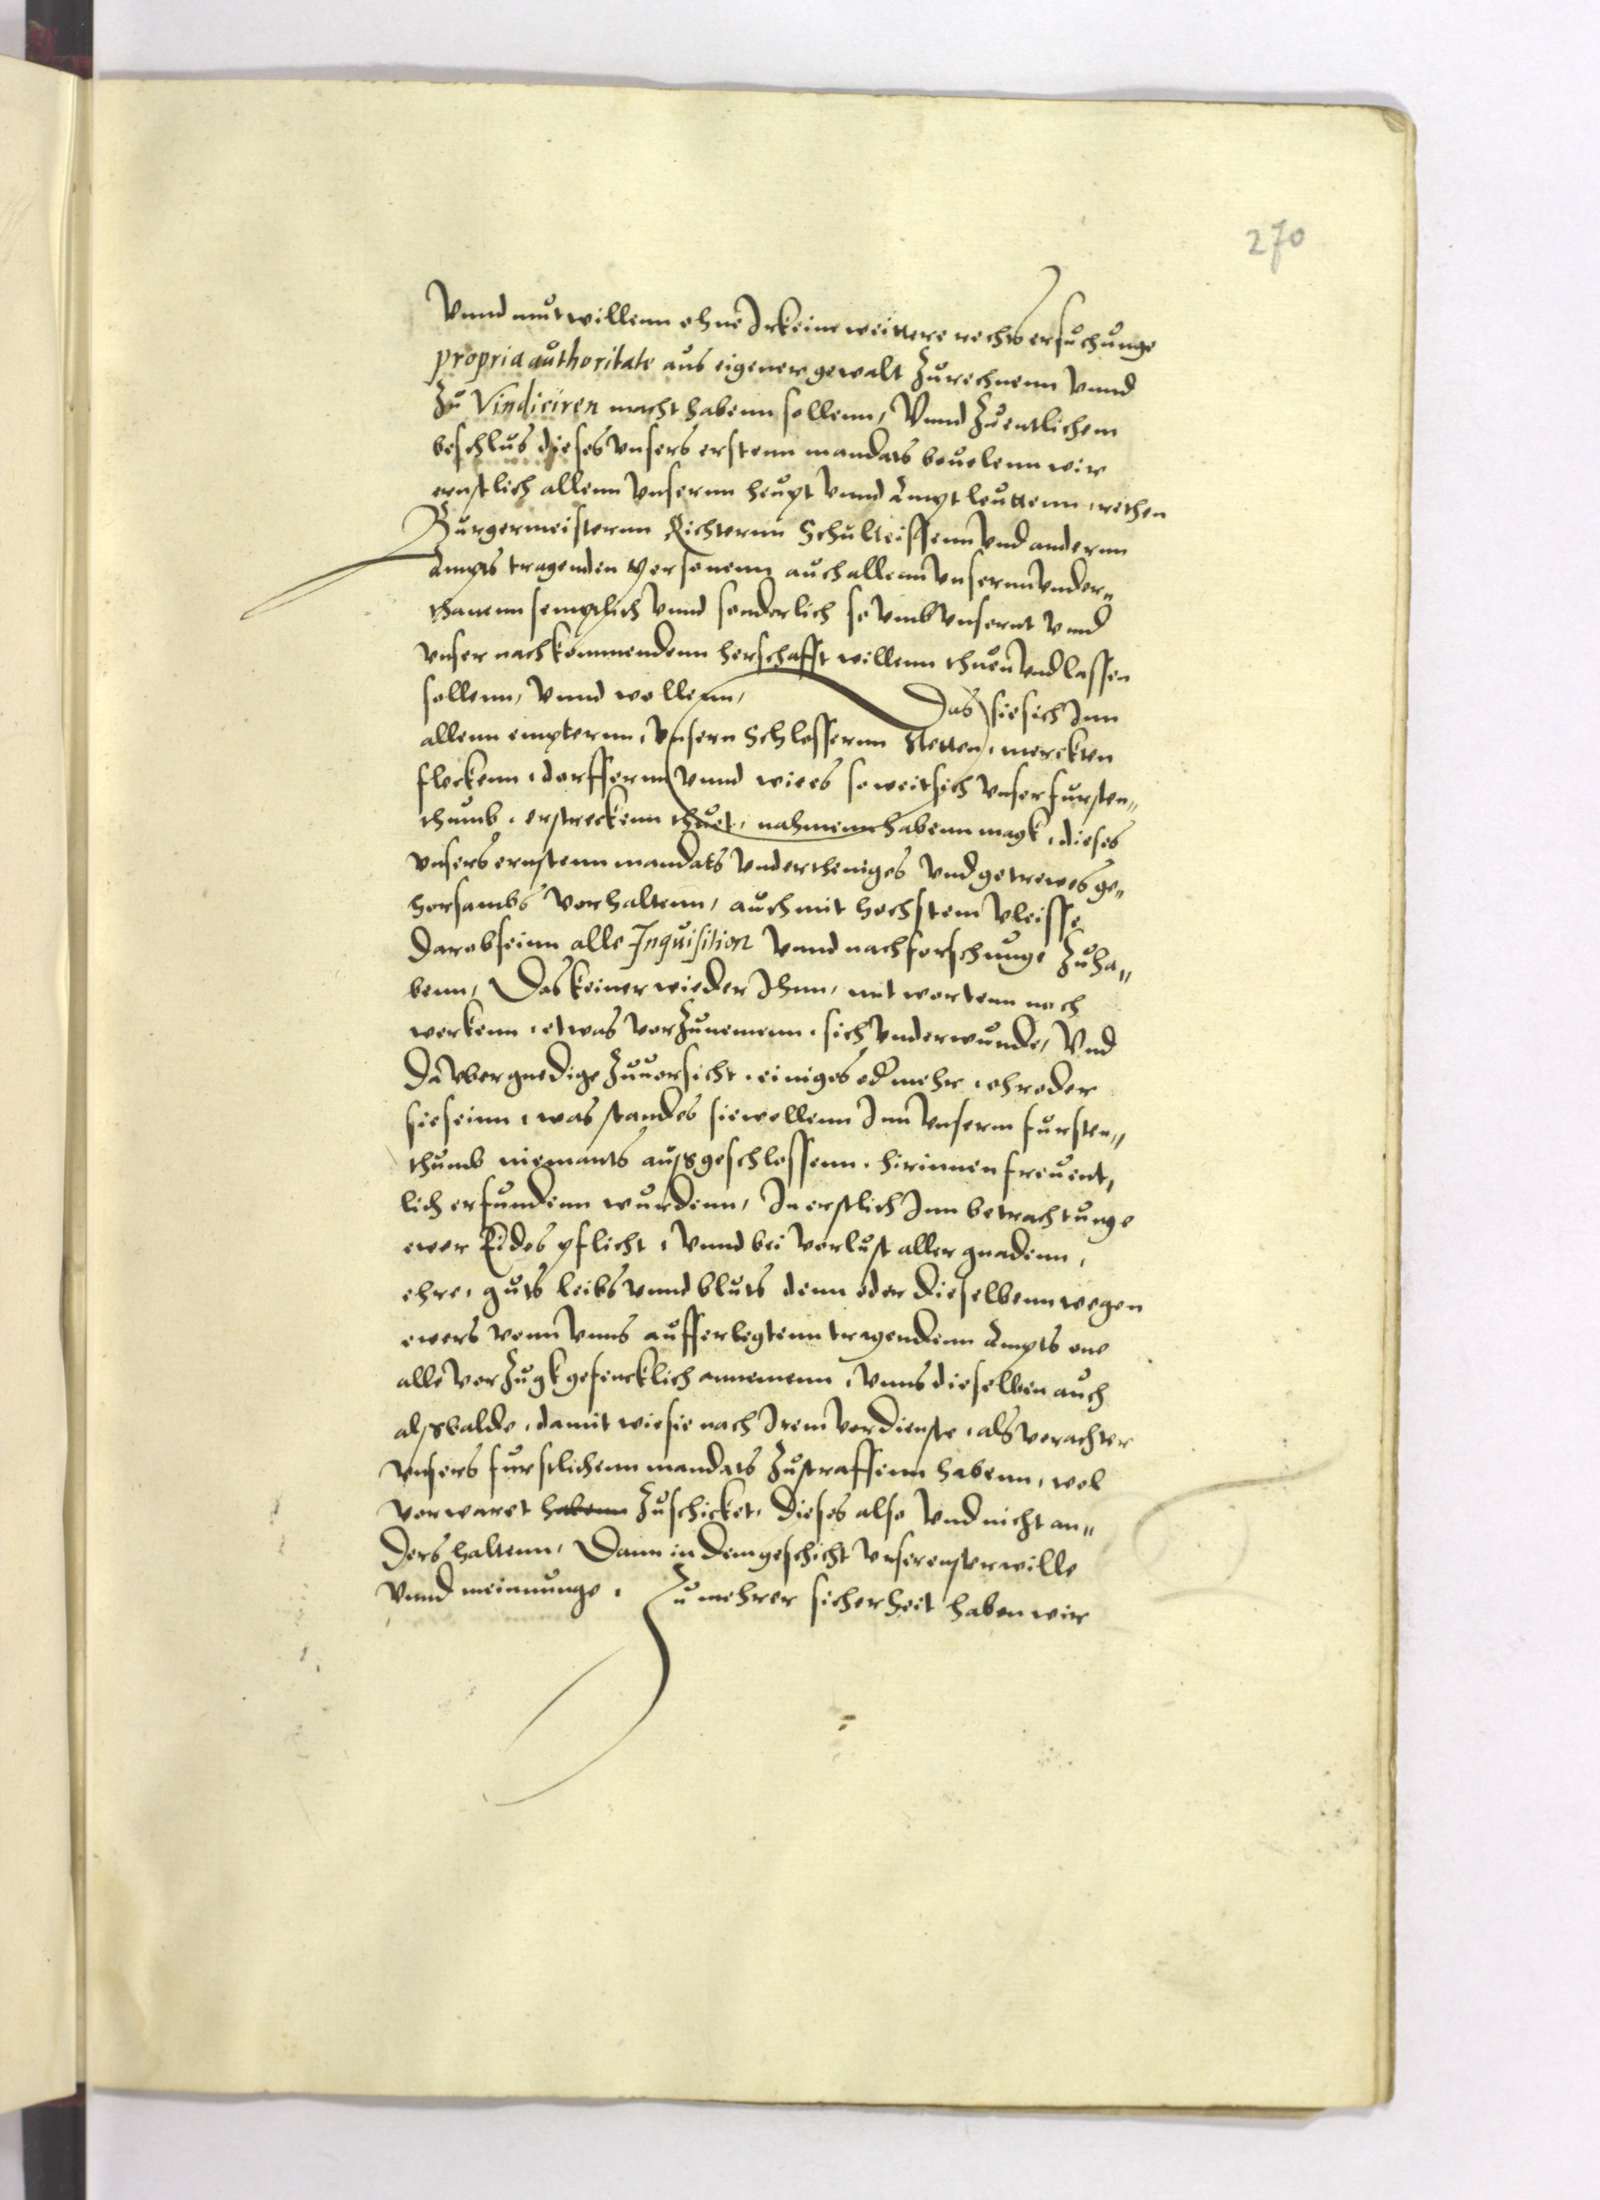 270
Vnnd mutwillenn ohne Irkeine weittere rechts ersuchunge
propria authoritate aus eigener gewalt Zurechnenn vnnd
Zu Vindiciren macht habenn sollenn, Vnnd Zuentlichem
beschlus dieses vnsers erstenn mandats beuelenn wir
ernstlich allenn vnsernn heupt vnnd Ampt leuttenn, rethen
Burgermeisternn Richternn Schulteissenn vnd andernn
Ampts tragenden Personenn auch allenn vnsernn vnder„
thanenn semptlich vnnd sonderlich so vmb vnsernt vnnd
vnser nachkommendenn herschafft willenn thuen vnd lassen
sollenn, vnnd wollenn, Das sie sich Inn
allenn empternn, vnsern Schlossernn Stetten, merckten
fleckenn, dorffernn vnnd wie es so weit sich vnser fursten„
thumb, erstreckenn thuet, nahmenn habenn magk, dieses
vnsers ernstenn mandats vndertheniges vnd getrewes ge„
horsambs verhaltenn, auch mit hochstem vleisse
darob seinn alle Inquisition vnnd nachforschunge Zuha„
benn, Das keiner wieder Ihnn, mit wortenn noch
werkenn, etwas vorZunemenn, sich vnderwunde, Vnd
Da vber gnedige Zuuorsicht, einiges od mehr, ehr oder
sie seinn, was standes sie wollenn Inn vnserm fursten„
thumb niemants aussgeschlossenn, hirinnen freuent,
lich erfundenn wurdenn, In erstlich Inn betrachtunge
ewer Eides pflicht, vnnd bei verlust aller gnadenn,
ehre, guts leibs vnnd bluts denn oder dieselbenn wegen
ewers vonn vnns aufferlegtenn tragendenn Ampts one
alle vorZugk gefencklich annemenn, vnns dieselben auch
alssbalde, damit wie sie nach Irem verdienste, als verachter
vnsers furstlichenn mandats Zustraffenn habenn, wol
verwaret habenn Zuschicket, Dieses also vnd nicht an„
ders haltenn, Dann in dem geschicht vnser enster wille
vnnd meinnunge, Zu mehrer sicherheit haben wir